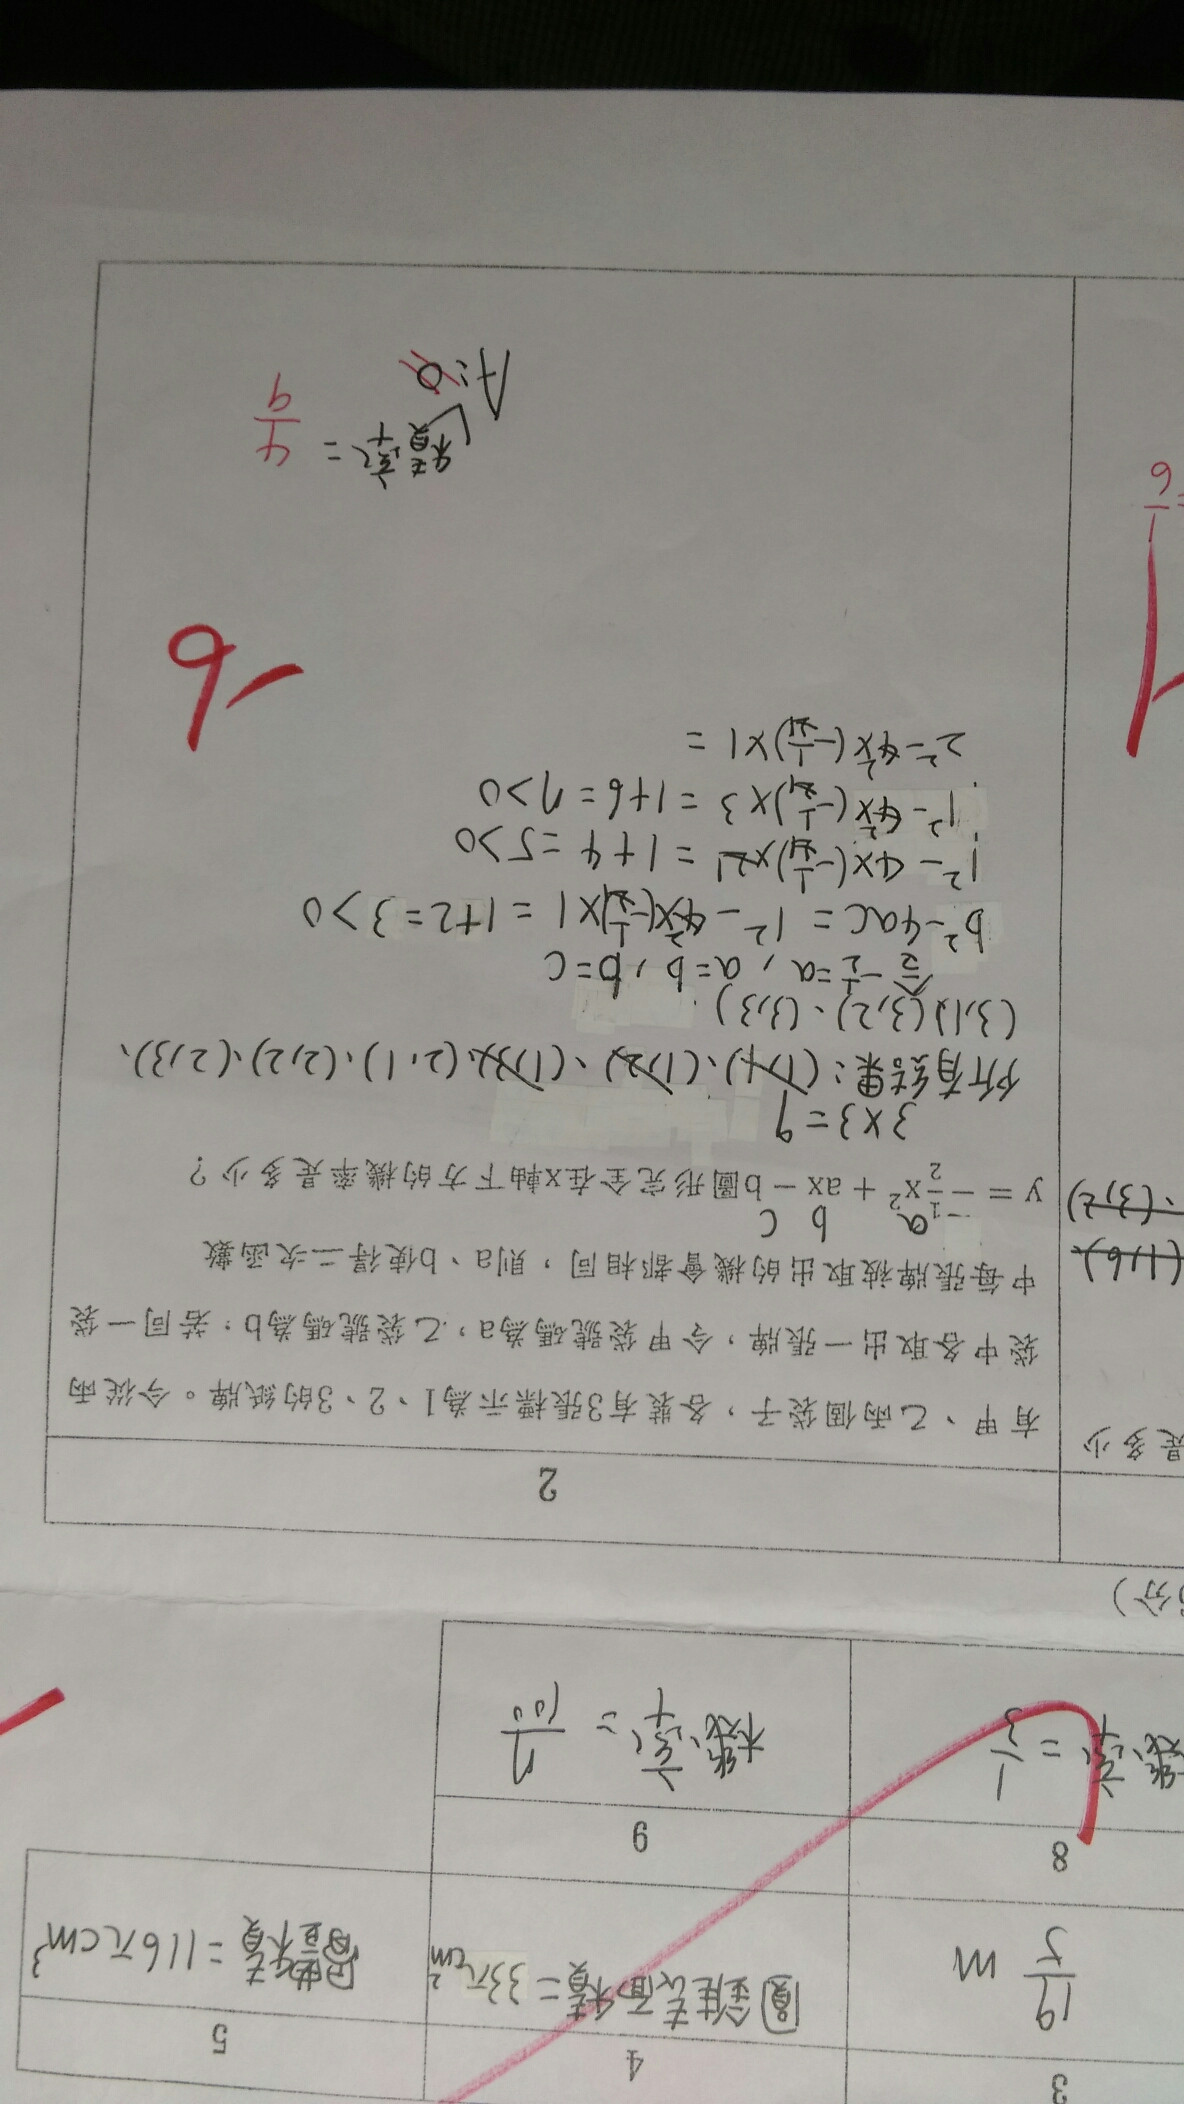 3
4
5
19/5 m
圓錐表面積=33πcm²
體積=116πcm³
8
9
機率=1/3
機率=7/100
分)
2
是多少
有甲、乙兩個袋子，各裝有3張標示為1、2、3的紙牌。今從兩
袋中各取出一張牌，令甲袋號碼為a，乙袋號碼為b，若同一袋
中每張牌被取出的機會都相同，則a、b使得二次函數
a b c
y = -1/2x² + ax - b圖形完全在x軸下方的機率是多少？
(1,6)、
、(3,2)
3×3=9
所有結果：(1,1)、(1,2)、(1,3)、(2,1)、(2,2)、(2,3)、
(3,1)、(3,2)、(3,3)
令-1/2=a，a=b，b=c
b²-4ac = 1²-4×(-1/2)×1 = 1+2=3>0
1²-4×(-1/2)×2 = 1+4=5>0
1²-4×(-1/2)×3 = 1+6=7>0
2²-4×(-1/2)×1 =
-6
=1/6
機率= 4/9
A:0